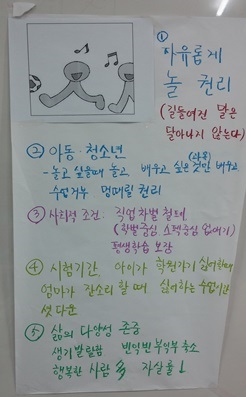 ① 자유롭게
놀 권리
(길들여진 말은
달아나지 않는다)
② 아동·청소년
- 놀고 싶을때 놀고 배우고 싶은 것만 배우고
수업거부 멍때릴 권리
③ 사회적 조건: 직업 차별 철폐
(차별중심 스펙중심 없애기)
평생학습 보장
④ 시험기간, 아이가 학원가기 싫어할때
엄마가 잔소리 할 때, 싫어하는 수업시간
셧 다운
⑤ 삶의 다양성 존중
생기발랄함 빈익빈 부익부 축소
행복한 사람 多 자살률↓